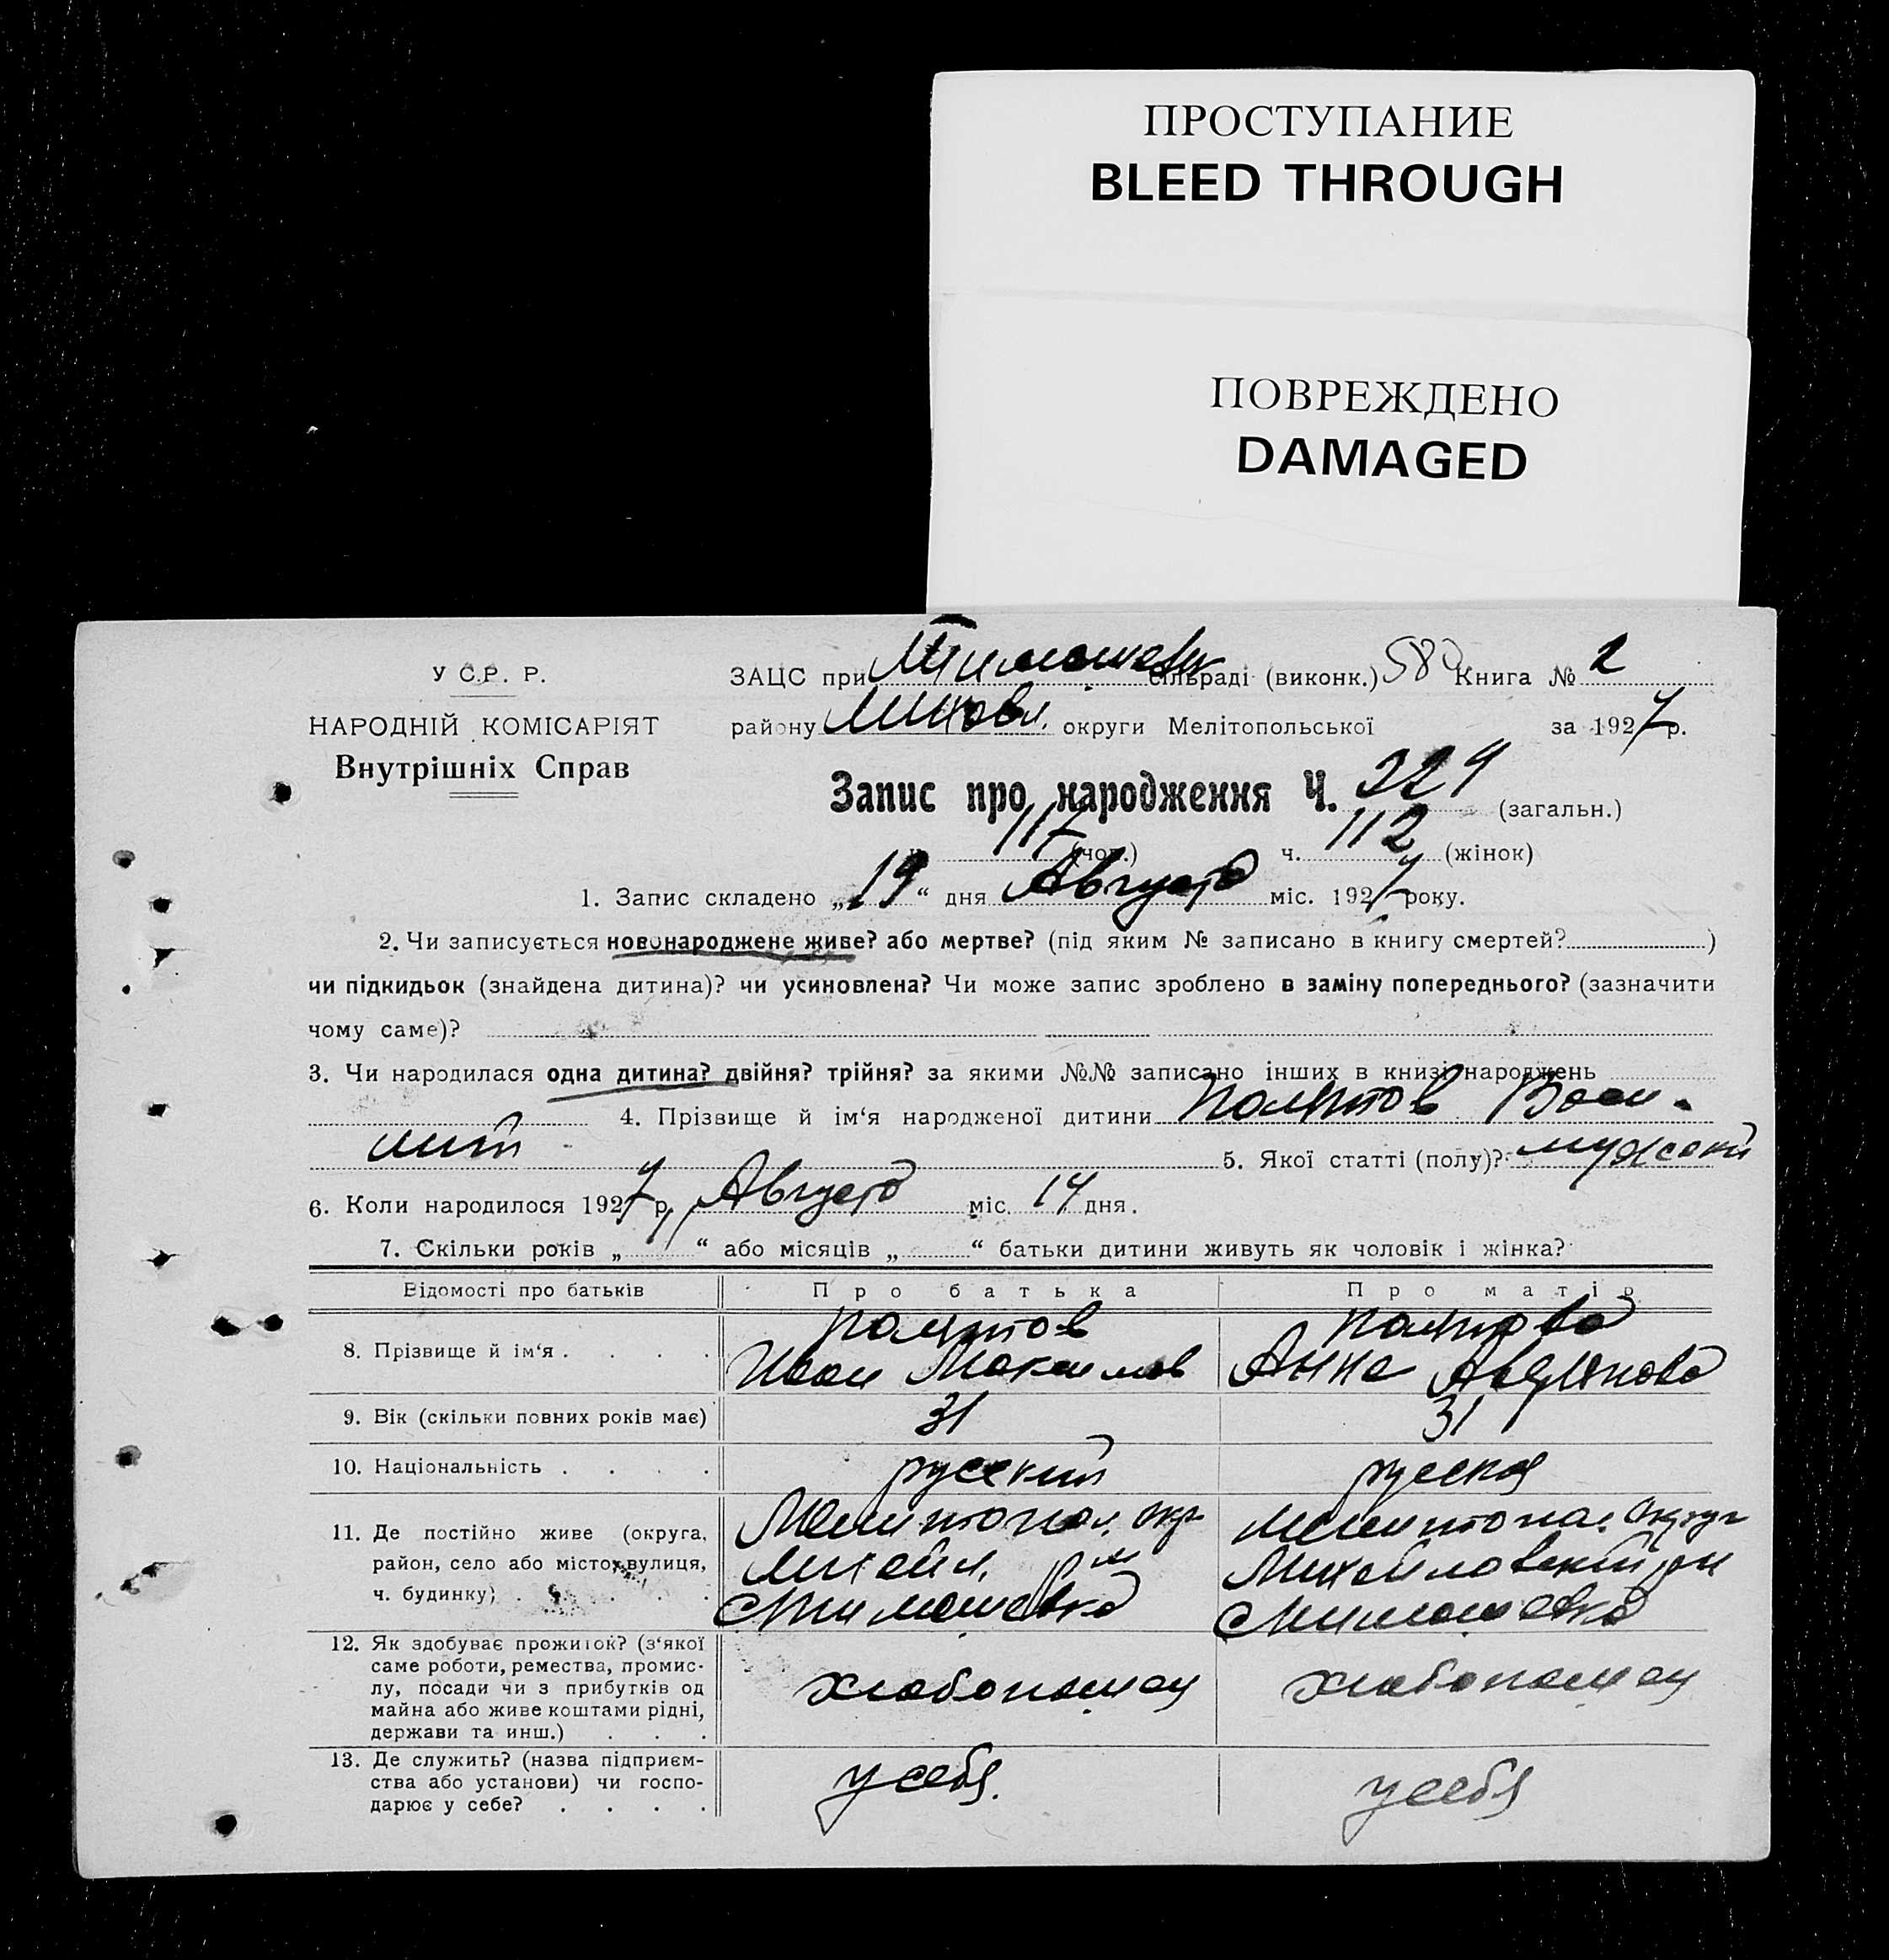 ПРОСТУПАНИЕ
BLEED THROUGH
ПОВРЕЖДЕНО
DAMAGED
У С.Р. Р.
НАРОДНІЙ КОМІСАРІЯТ
Внутрішніх Справ
ЗАЦС при Тимошевк сільраді (виконк.) 580 Книга № 2
району округи Мелітопольської за 1927 р.
Запис про народження Ч. 229 (загальн.)
117 (чол.) ч. 112 (жінок)
1. Запис складено „19“ дня Августа міс. 1927 року.
2. Чи записується новонароджене живе? або мертве? (під яким № записано в книгу смертей? )
чи підкидьок (знайдена дитина)? чи усиновлена? Чи може запис зроблено в заміну попереднього? (зазначити
чому саме)?
3. Чи народилася одна дитина? двійня? трійня? за якими №№ записано інших в книзі народжень
4. Прізвище й ім‘я народженої дитини Васи-
лий 5. Якої статті (полу)? мужской
6. Коли народилося 1927 р. Августа міс. 14 дня.
7. Скільки років „ 11 “ або місяців „ “ батьки дитини живуть як чоловік і жінка?
Відомості про батьків Про батька Про матір
8. Прізвище й ім‘я . . . .
Иван Максимов Анна
9. Вік (скільки повних років має) 31 31
10. Національність . . . . русский русская
11. Де постійно живе (округа, Мелитопол. окр Мелитопол. округ
район, село або місто, вулиця, Михайл. рн Михайловский рн
ч. будинку) . . . . . Тимошевка Тимошевка
12. Як здобуває прожиток? (з‘якої
саме роботи, ремества, промис-
лу, посади чи з прибутків од хлебопашец хлебопашец
майна або живе коштами рідні,
держави та инш.) . . .
13. Де служить? (назва підприєм-
ства або установи) чи госпо- у себя. у себя
дарює у себе? . . . .